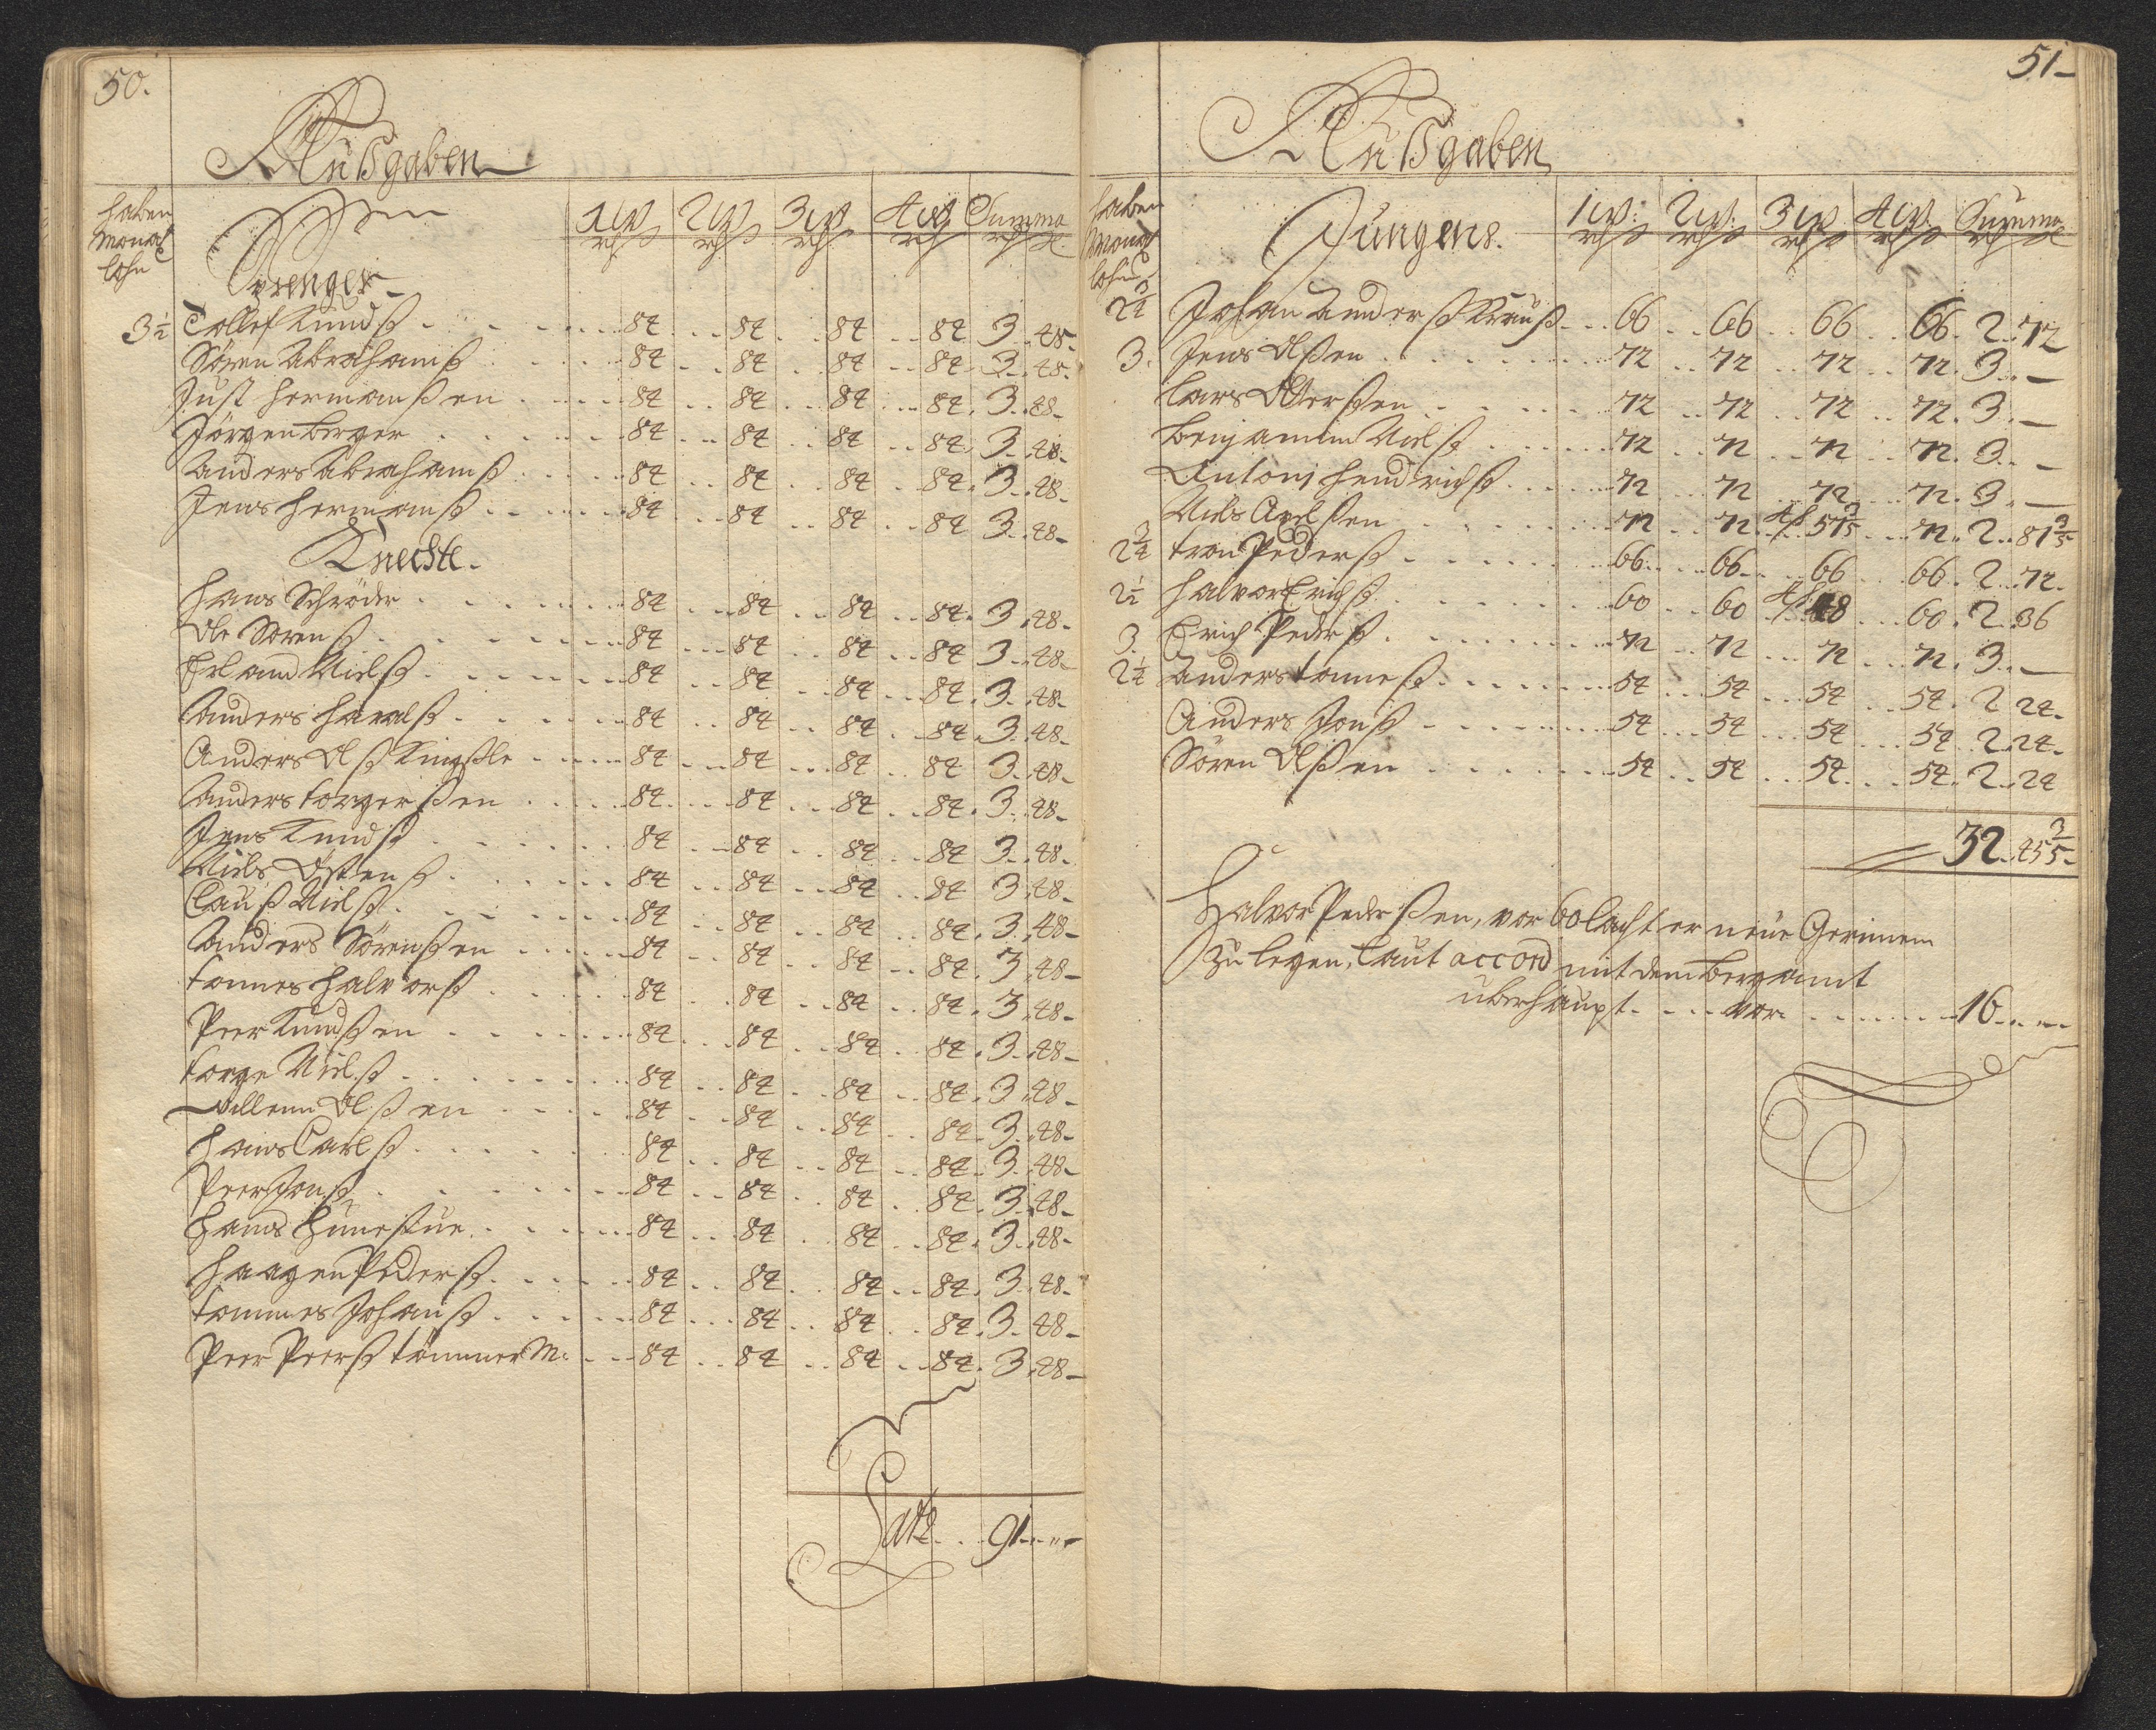 50.
Außgaben
haben Monat lohn
1W. 2W. 3W. 4W. Summa
rh ß rh ß rh ß rh ß rh ß
Svenger
3½ Tollef Knudß 84 84 84 84 3 48
Sören Abrahamß 84 84 84 84 3 48
Just Hermanßen 84 84 84 84 3 48
Jörgen Berger 84 84 84 84 3 48
Anders Abrahamß 84 84 84 84 3 48
Jens Hermanß 84 84 84 84 3 48
Knechte.
Hans Schröder 84 84 84 84 3 48
Ole Sörenß 84 84 84 84 3 48
Erland Nielß 84 84 84 84 3 48
Anders Haralß 84 84 84 84 3 48
Anders Olß 84 84 84 84 3 48
Anders Torgerßen 84 84 84 84 3 48
Jens Knudß 84 84 84 84 3 48
Niels Östenß 84 84 84 84 3 48
Clauß Nielß 84 84 84 84 3 48
Anders Sörenßen 84 84 84 84 3 48
Tonnes Halvorß 84 84 84 84 3 48
Peer Knudßen 84 84 84 84 3 48
Torge Nielß 84 84 84 84 3 48
Villem Olßen 84 84 84 84 3 48
Hans Carlß 84 84 84 84 3 48
Peer Jonß 84 84 84 84 3 48
Hans Hunestue 84 84 84 84 3 48
Haagen Pederß 84 84 84 84 3 48
Tommes Johanß 84 84 84 84 3 48
Peer Peerß Tömmer M: 84 84 84 84 3 48
Late 91
51
Außgaben
haben Monat lohn
Jungens.
1W: 2W: 3W. 4W. Summa
rh ß rh ß rh ß rh ß rh ß
2¾ Johan Anderß Krauß 66 66 66 66 2 72
3. Jens Olßen 72 72 72 72 3 —
Lars Olterßen 72 72 72 72 3 —
Benjamin Nielß 72 72 72 72 3 —
Antoni Hendrichß 72 72 72 72 3 —
Niels Axelßen 72 72 4ß 57⅗ 72 2 81⅗
2¾ Tron Pederß 66 66 66 66 2 72
2½ Halvor Erichß 60 60 4ß 48 60 2 36
3 Erich Pederß 72 72 72 72 3 —
2¼ Anders Tonneß 54 54 54 54 2 24
Anders Jonß 54 54 54 54 2 24
Sören Olßen 54 54 54 54 2 24
32 45⅗
Halvor Pederßen, vor 60 lachter neue Gerinnen
zu legen, laut accord mit dem Bergamt
überhaupt vor 16